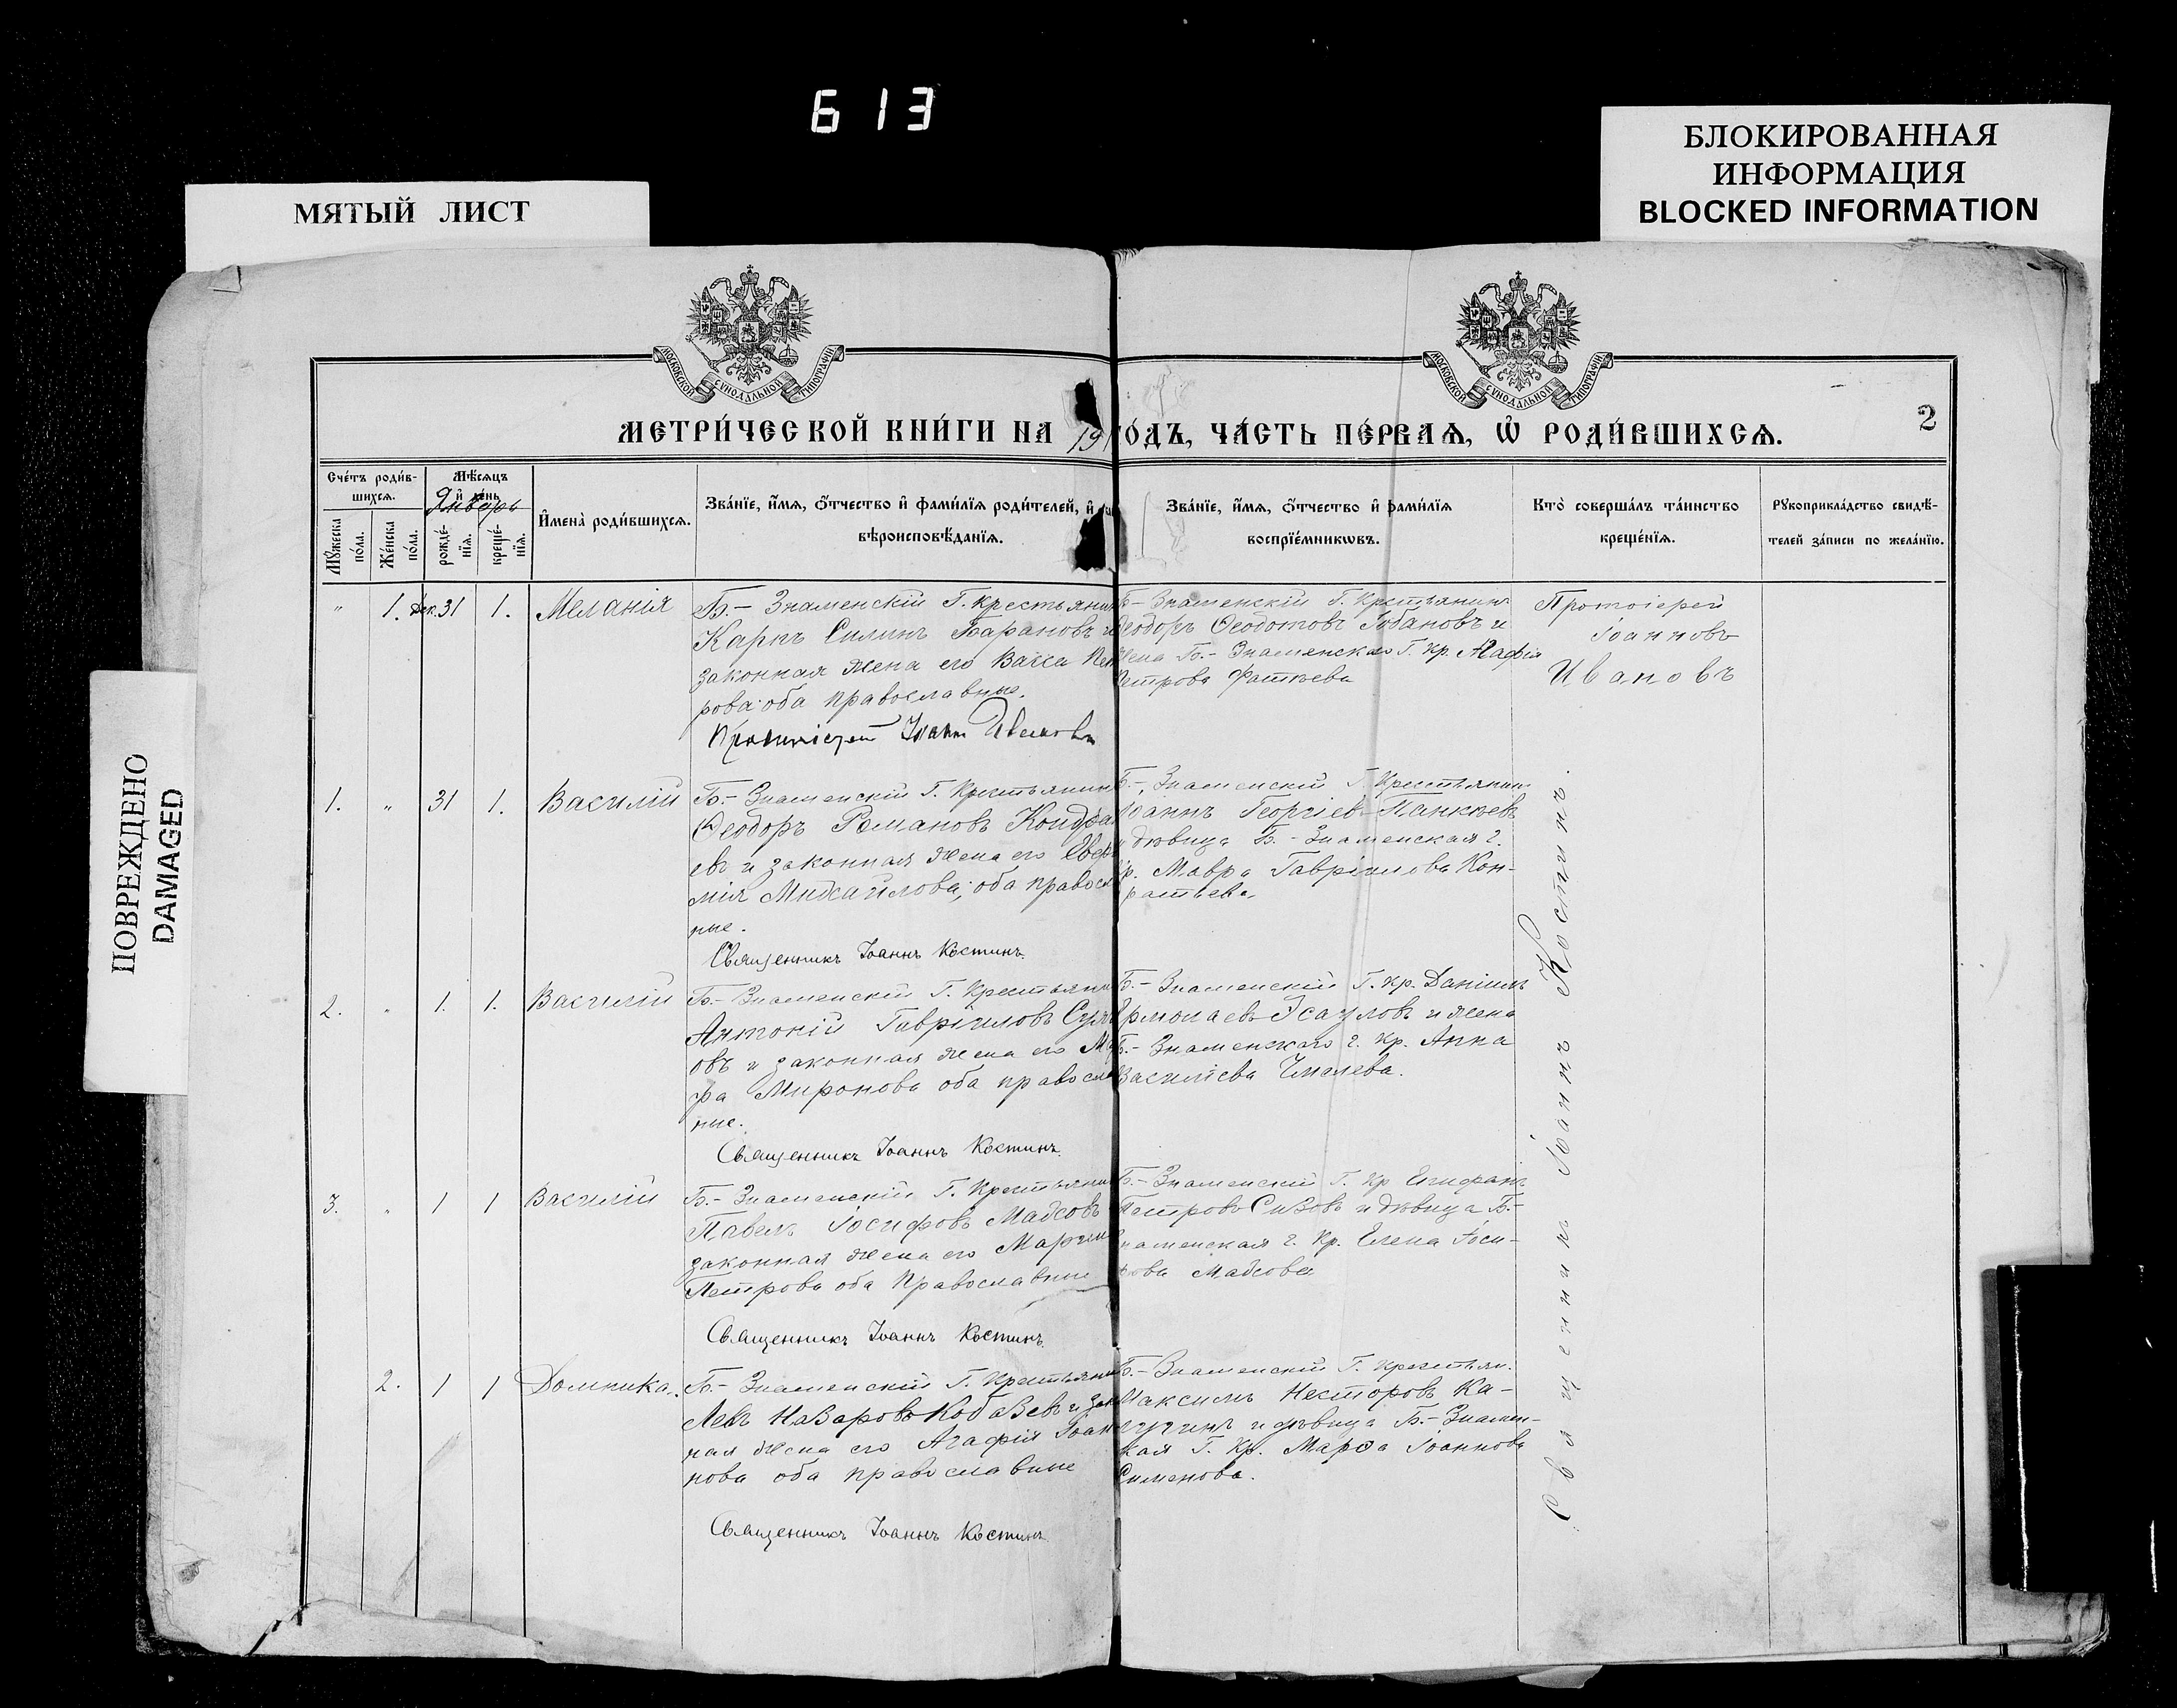 613
БЛОКИРОВАННАЯ
ИНФОРМАЦИЯ
BLOCKED INFORMATION
МЯТЫЙ ЛИСТ
ПОВРЕЖДЕНО
DAMAGED
МОСКОВСКОЙ СѴНОДАЛЬНОЙ ТИПОГРАФІИ
МОСКОВСКОЙ СѴНОДАЛЬНОЙ ТИПОГРАФІИ
2
МЕТРИ́ЧЕСКОЙ КНИ́ГИ НА 19 ГО́ДЪ, ЧА́СТЬ ПЕ́РВАѦ, Ѡ҆ РОДИ́ВШИХСѦ.
Сче́тъ роди́в-
шихсѧ.
Мꙋ́жеска
по́ла.
Же́нска
по́ла.
Мѣ́сѧцъ
и҆ де́нь
Январь
рожде́-
нїѧ.
креще́-
нїѧ.
И҆мена̀ роди́вшихсѧ.
Зва́нїе, и҆́мѧ, ѻ҆́тчество и҆ фами́лїѧ роди́телей, и҆
вѣроисповѣ́данїѧ.
Зва́нїе, и҆́мѧ, ѻ҆́тчество и҆ фами́лїѧ
воспрїе́мникѡвъ.
Кто̀ соверша́лъ та́инство
креще́нїѧ.
Рꙋкоприкла́дство свидѣ́-
телей за́писи по жела́нїю.
" 1. Дек. 31 1. Меланія
Б.- Знаменскій Г. крестьянин
Карпъ Силинъ Барановъ и
законная жена его Васса Пет
рова оба православные.
Протоіерей Іоаннъ Ивановъ
Б- Знаменскій Г. Крестьянинъ
Ѳеодоръ Ѳеодотовъ Губановъ и
жена Б.- Знаменскаго Г. Кр.
Петрова Фатѣева
Протоіерей
Іоаннъ
Ивановъ
1. " 31 1. Василій
Б.- Знаменскій Г. Крестьянин
Ѳеодоръ Романовъ Кондра
евъ и законная жена его Евфи
мія Михайлова, оба правосл
ные.
Священникъ Іоаннъ Костинъ.
Б-, Знаменскій Г. Крестьянинъ
Іоаннъ Георгіевъ Панкѣевъ
и дѣвица Б.- Знаменская г.
Кр. Мавра Гавріилова Кон-
ратьева
2. " 1. 1. Василій
Б.- Знаменскій Г. Крестьянин
Антоній Гавріиловъ
овъ и законная жена его
ра Миронова оба правосла
ные.
Священникъ Іоаннъ Костинъ.
Б.- Знаменскій Г. Кр. Даніилъ
Ермолаевъ Эсауловъ и жена
Б.- Знаменскаго г. Кр. Анна
Василіева Чмелева.
3. " 1 1 Василій
Б.- Знаменскій Г. Крестьянин
Павелъ Іосифовъ Мадсовъ
законная жена его
Петрова оба Православные
Священникъ Іоаннъ Костинъ.
Б.- Знаменскій Г. Кр Епифанъ
Петровъ Сизовъ и дѣвица Б.-
Знаменская г. Кр. Елена Іоси-
фова Мадсова
2. 1 1 Домника.
Б.- Знаменскій Г. Крестьянин
Левъ Назаровъ Кобзевъ и зак
ная жена его Агафія Іоан
нова оба православные
Священникъ Іоаннъ Костинъ
Б.- Знаменскій Г. Крестьян.
Максимъ Несторовъ Ка-
лугинъ и дѣвица Б.- Знамен-
ская Г. Кр. Марѳа Іоаннова
Сименова.
Священникъ Іоаннъ Костинъ.